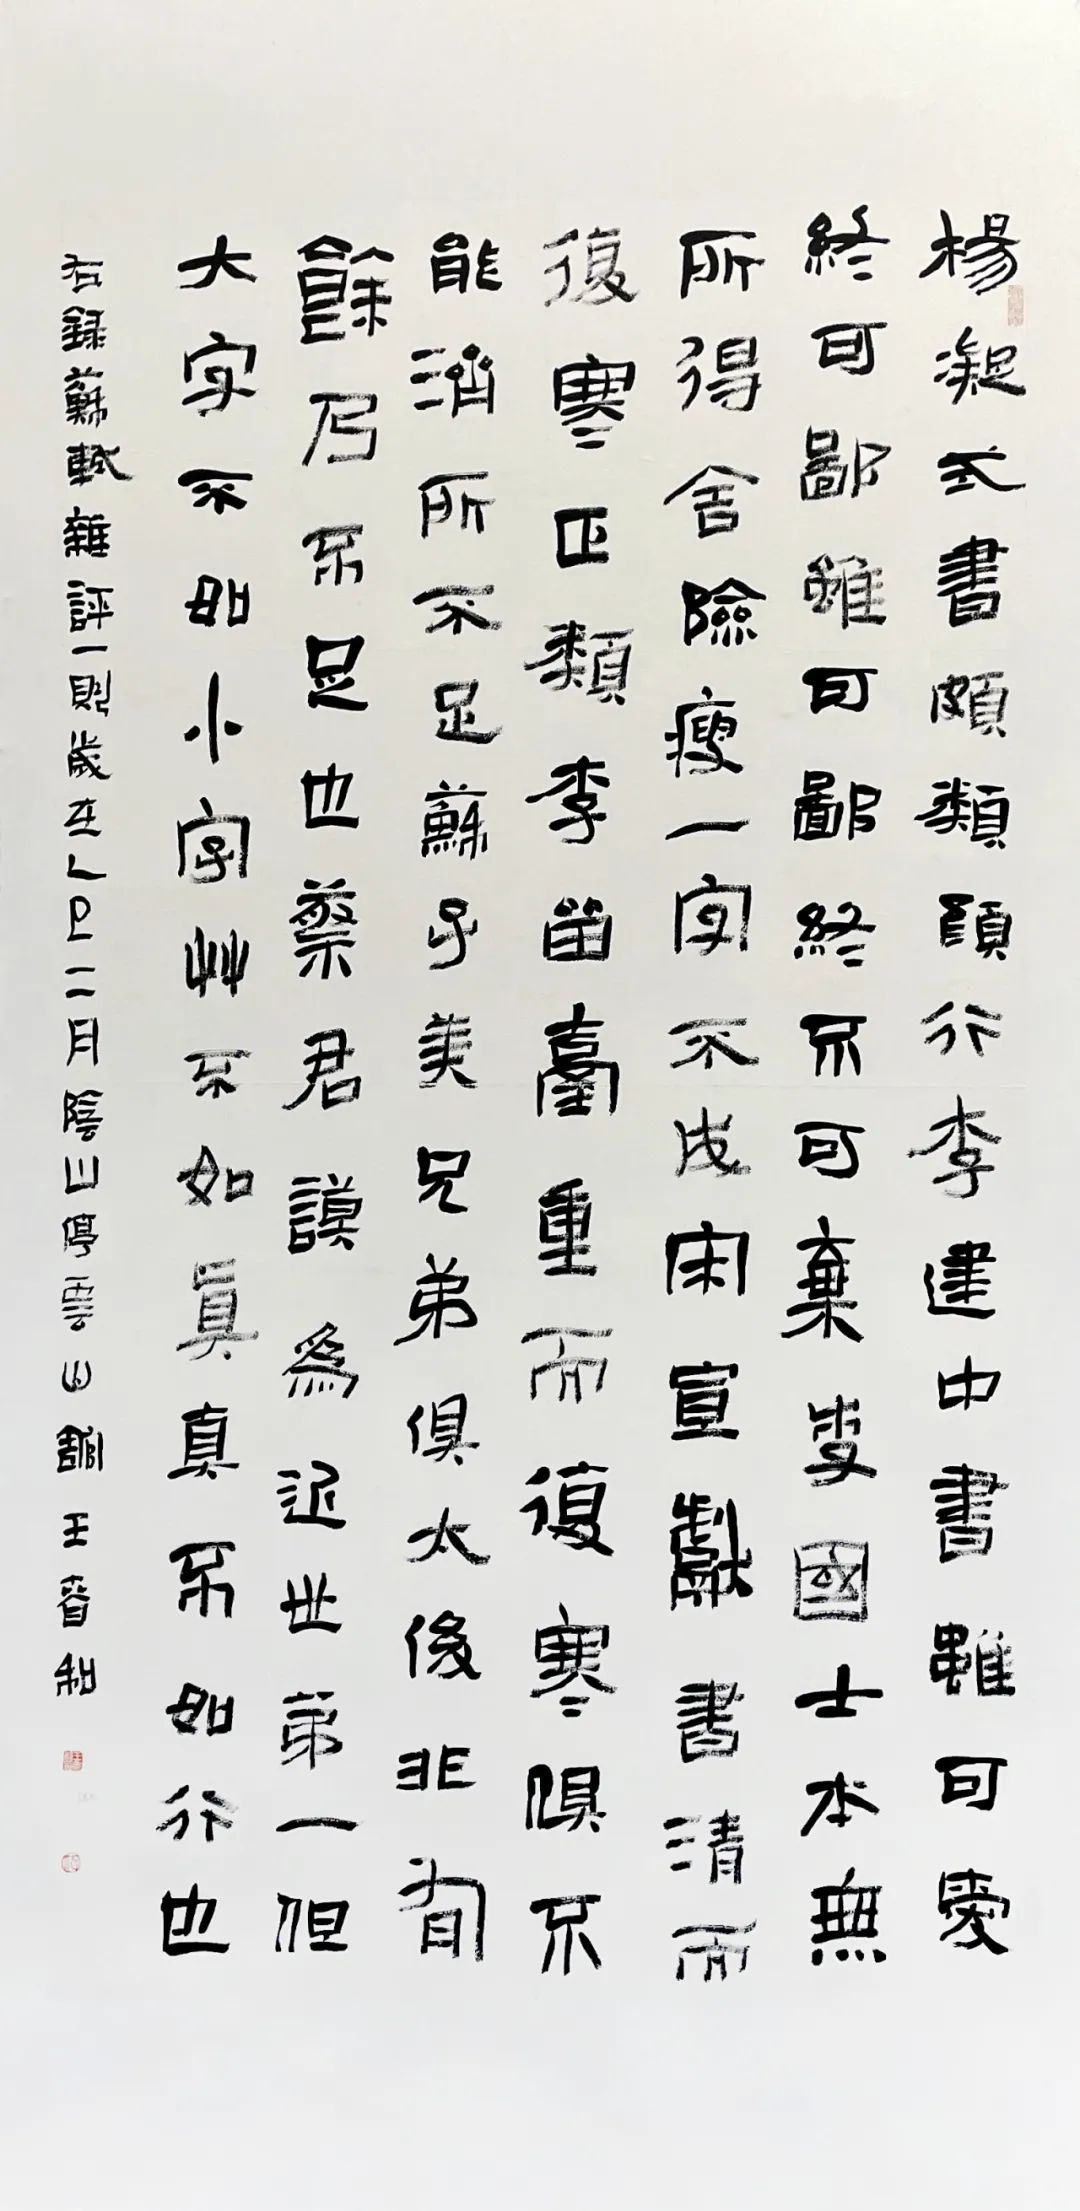 楊凝式書頗類顏行李建中書雖可愛
終可鄙雖可鄙終不可棄國士本無
所得舍險瘦一字不成宋宣獻書清而
復寒正類李留臺重而復寒俱不
能濟所不足蘇子美兄弟俱太俊非有
餘乃不足也蔡君謨為近世弟一但
大字不如小字艸不如真真不如行也
右錄蘇軾雜評一則歲在乙巳二月陰山停雲山館王